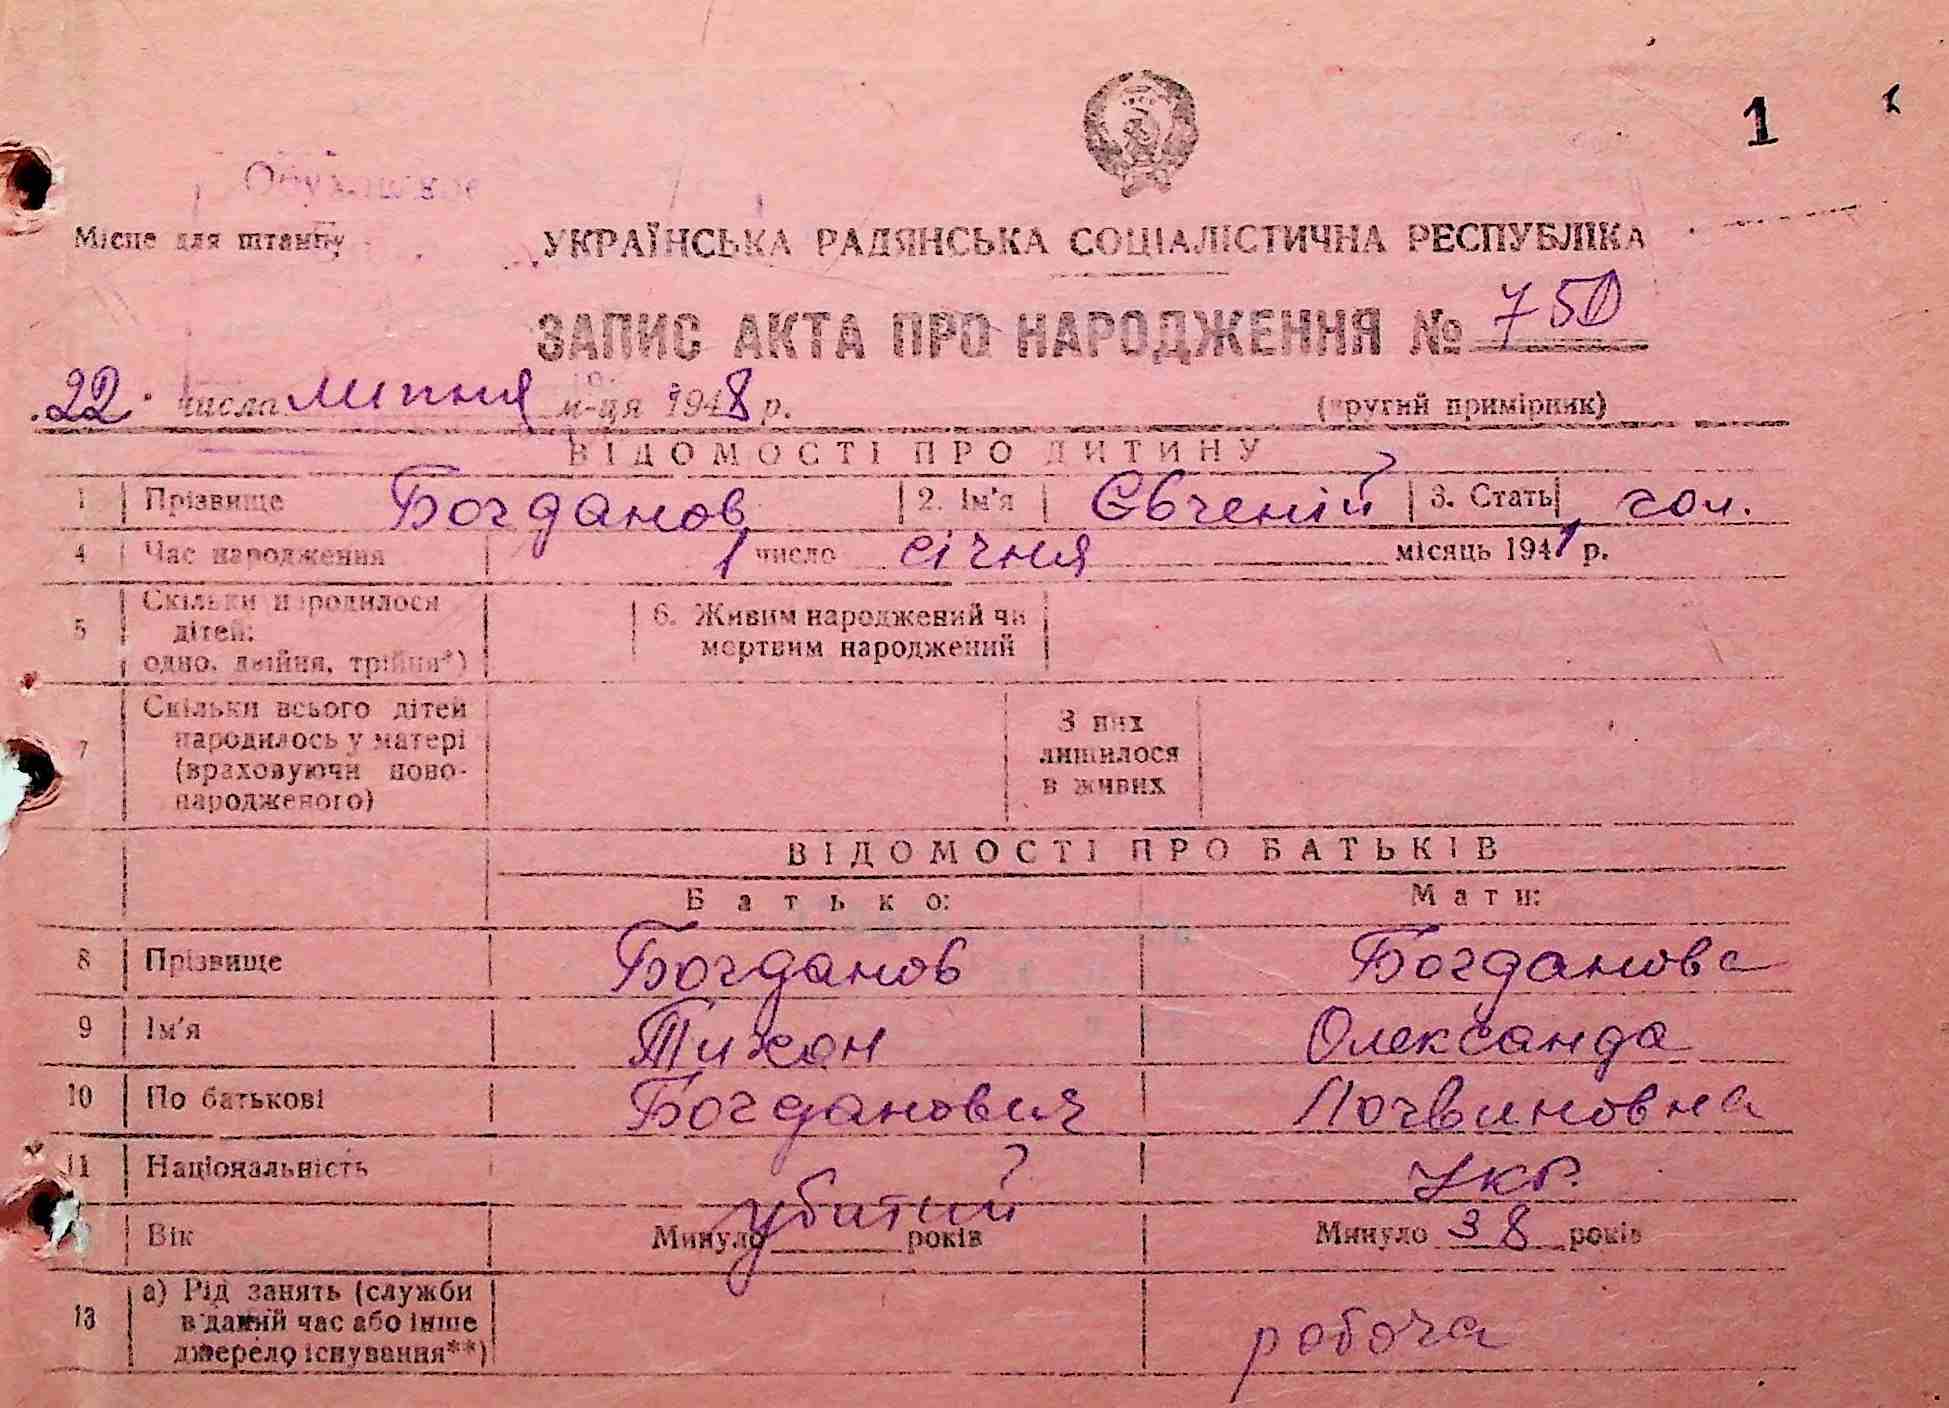 1
Місце для штампу
УКРАЇНСЬКА РАДЯНСЬКА СОЦІАЛІСТИЧНА РЕСПУБЛІКА
ЗАПИС АКТА ПРО НАРОДЖЕННЯ № 750
22 числа липня м-ця 1948 р. (другий примірник)
ВІДОМОСТІ ПРО ДИТИНУ
1 Прізвище Богданов 2. Ім'я Євгеній 3. Стать чол.
4 Час народження 1 число січня місяць 1941 р.
5 Скільки народилося
дітей:
одно, двійня, трійня*)
6. Живим народжений чи
мертвим народжений
7 Скільки всього дітей
народилось у матері
(враховуючи ново-
народженого)
З них
лишилося
в живих
ВІДОМОСТІ ПРО БАТЬКІВ
Батько: Мати:
8 Прізвище Богданов Богданова
9 Ім'я Тихон Олександа
10 По батькові Богданович Логвиновна
11 Національність убитий Укр.
Вік Минуло років Минуло 38 років
13 а) Рід занять (служби
в даний час або інше
джерело існування**)
робоча